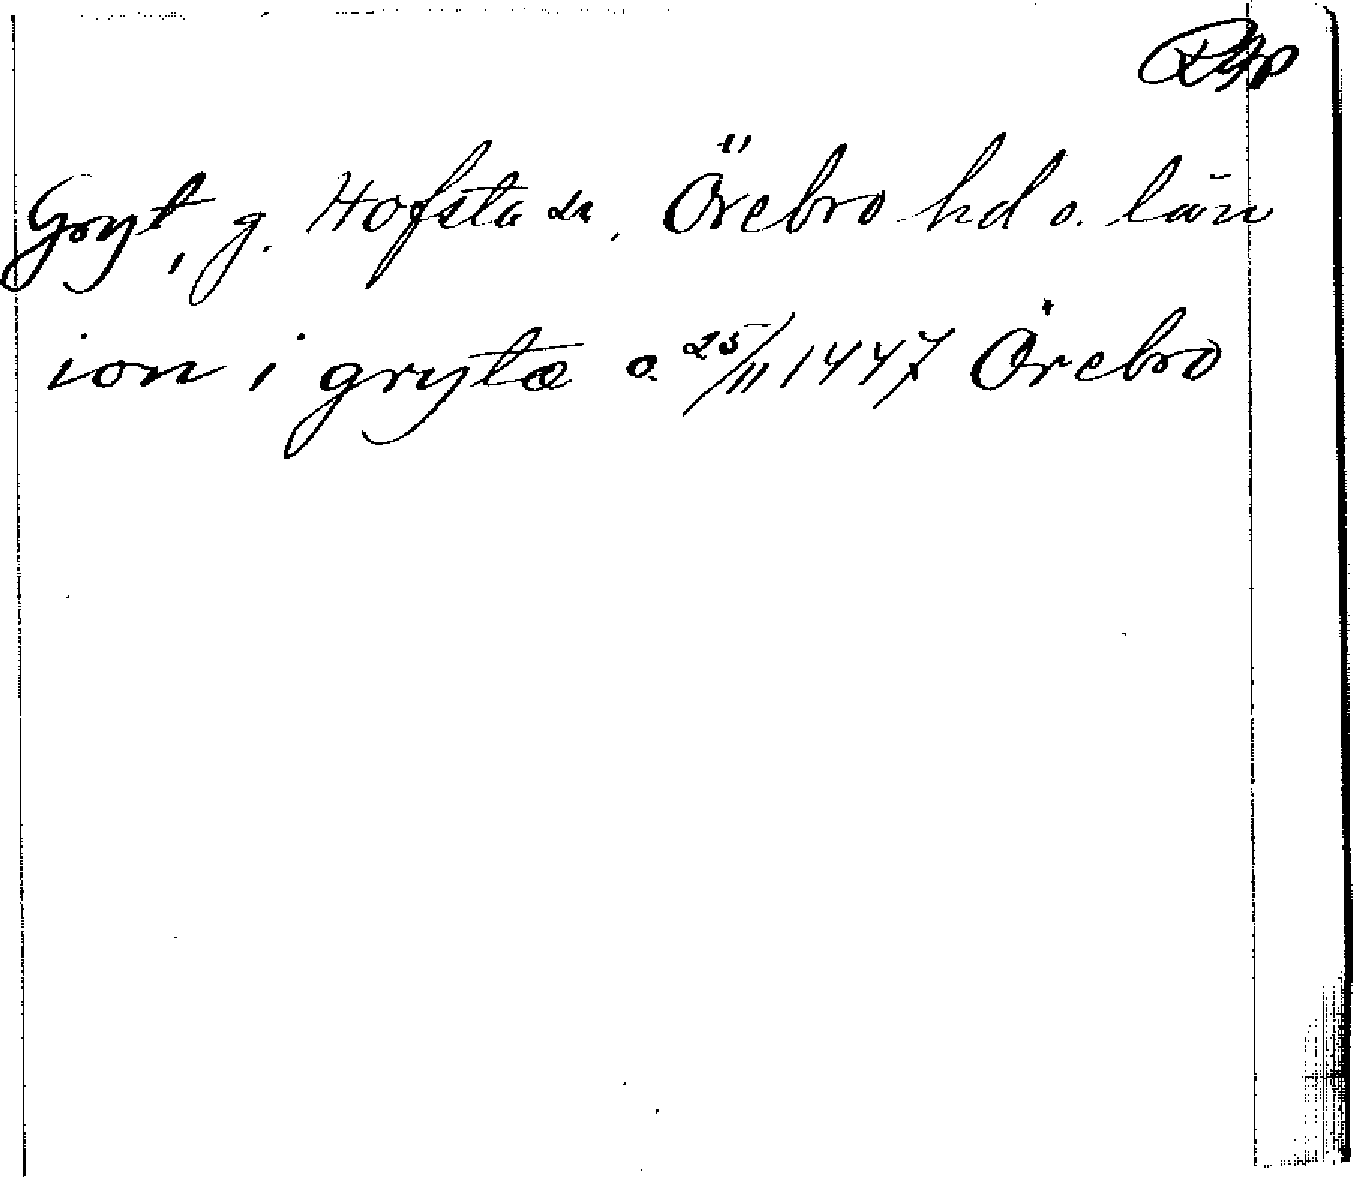 Gryt, g. Hofsta sn, Örebro hd o. län
ion i grytæ o. 25/11 1447 Örebro